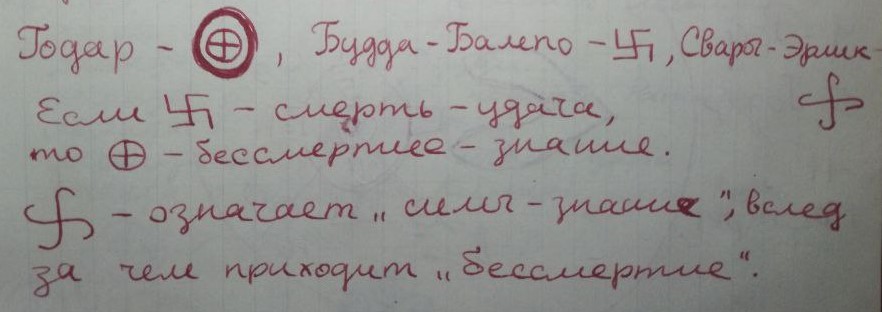 Годар - ⊕, Будда-Балепо - 卐, Сварог-Эрлик-
Если 卐 - смерть - удача,
то ⊕ - бессмертие - знание.
- означает „силы - знание", вслед
за чем приходит „бессмертие".